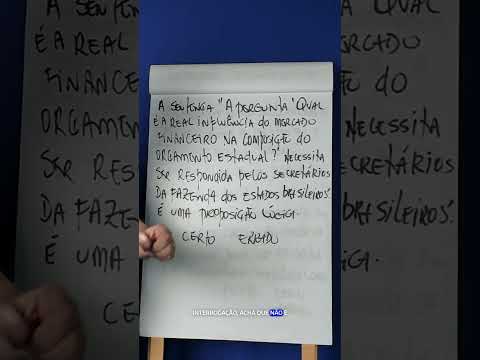 A SENTENÇA "A PERGUNTA 'QUAL
É A REAL INFLUÊNCIA DO MERCADO
FINANCEIRO NA COMPOSIÇÃO DO
ORÇAMENTO ESTADUAL?' NECESSITA
SER RESPONDIDA PELOS SECRETÁRIOS
DA FAZENDA DOS ESTADOS BRASILEIROS".
É UMA PROPOSIÇÃO LÓGICA.
CERTO ERRADO
INTERROGAÇÃO, ACHA QUE NÃO É